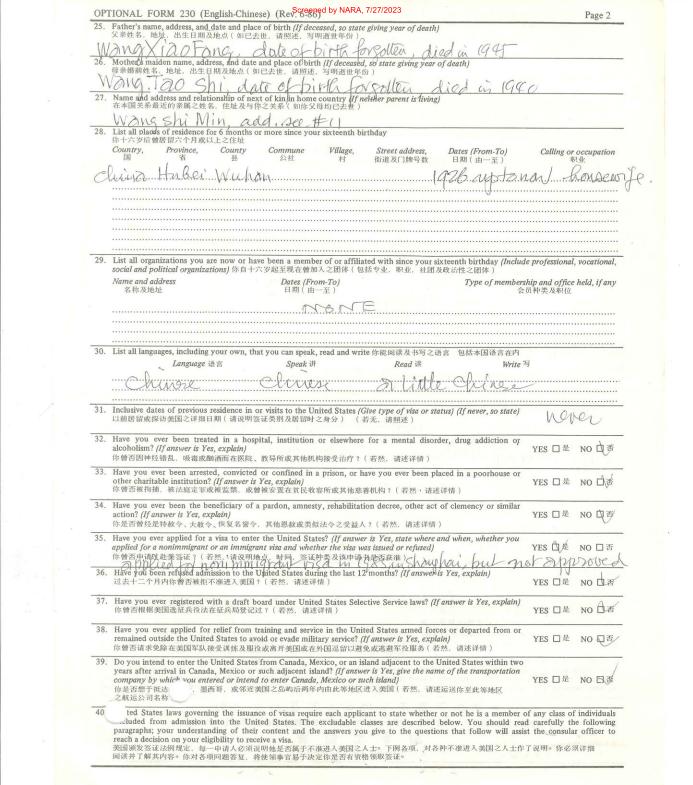 Screened by NARA, 7/27/2023
OPTIONAL FORM 230 (English-Chinese) (Rev. 6-86) Page 2
25. Father's name, address, and date and place of birth (If deceased, so state giving year of death)
父亲姓名、地址、出生日期及地点(如已去世,请照述,写明逝世年份)
Wang Xiao Fang, date of birth forgotten, died in 1945
26. Mother's maiden name, address, and date and place of birth (If deceased, so state giving year of death)
母亲婚前姓名、地址、出生日期及地点(如已去世,请照述,写明逝世年份)
Wang Tao Shi, date of birth forgotten, died in 1940
27. Name and address and relationship of next of kin in home country (If neither parent is living)
在本国关系最近的亲属之姓名、住址及与你之关系(如你父母均已去世)
Wang Shi Min, add. see #11
28. List all places of residence for 6 months or more since your sixteenth birthday
你十六岁后曾居留六个月或以上之住址
Country, Province, County Commune Village, Street address, Dates (From-To) Calling or occupation
国 省 县 公社 村 街道及门牌号数 日期(由一至) 职业
China Hubei Wuhan 1926 up to now housewife.
29. List all organizations you are now or have been a member of or affiliated with since your sixteenth birthday (Include professional, vocational,
social and political organizations) 你自十六岁起至现在曾加入之团体(包括专业、职业、社团及政治性之团体)
Name and address Dates (From-To) Type of membership and office held, if any
名称及地址 日期(由一至) 会员种类及职位
NONE
30. List all languages, including your own, that you can speak, read and write 你能阅读及书写之语言 包括本国语言在内
Language 语言 Speak 讲 Read 读 Write 写
Chinese Chinese a little Chinese
31. Inclusive dates of previous residence in or visits to the United States (Give type of visa or status) (If never, so state)
以前居留或探访美国之详细日期(请说明签证类别及居留时之身分)(若无,请照述)
never
32. Have you ever been treated in a hospital, institution or elsewhere for a mental disorder, drug addiction or
alcoholism? (If answer is Yes, explain) YES 是 NO 否
你曾否因神经错乱、吸毒或酗酒而在医院、教导所或其他机构接受治疗?(若然,请述详情)
33. Have you ever been arrested, convicted or confined in a prison, or have you ever been placed in a poorhouse or
other charitable institution? (If answer is Yes, explain) YES 是 NO 否
你曾否被拘捕、被法庭定罪或被监禁,或曾被安置在贫民收容所或其他慈善机构?(若然,请述详情)
34. Have you ever been the beneficiary of a pardon, amnesty, rehabilitation decree, other act of clemency or similar
action? (If answer is Yes, explain) YES 是 NO 否
你是否曾经是特赦令、大赦令、恢复名誉令、其他恩赦或类似法令之受益人?(若然,请述详情)
35. Have you ever applied for a visa to enter the United States? (If answer is Yes, state where and when, whether you
applied for a nonimmigrant or an immigrant visa and whether the visa was issued or refused) YES 是 NO 否
applied for nonimmigrant visa in 1985 in Shanghai, but not approved
36. Have you been refused admission to the United States during the last 12 months? (If answer is Yes, explain)
过去十二个月内你曾否被拒不准进入美国?(若然,请述详情) YES 是 NO 否
37. Have you ever registered with a draft board under United States Selective Service laws? (If answer is Yes, explain)
你曾否根据美国选征兵役法在征兵局登记过?(若然,请述详情) YES 是 NO 否
38. Have you ever applied for relief from training and service in the United States armed forces or departed from or
remained outside the United States to avoid or evade military service? (If answer is Yes, explain) YES 是 NO 否
你曾否请求免除在美国军队接受训练及服役或离开美国或在外国逗留以避免或逃避军役服务(若然,请述详情)
39. Do you intend to enter the United States from Canada, Mexico, or an island adjacent to the United States within two
years after arrival in Canada, Mexico or such adjacent island? (If answer is Yes, give the name of the transportation
company by which you entered or intend to enter Canada, Mexico or such island) YES 是 NO 否
你是否想于抵达 、墨西哥、或邻近美国之岛屿后两年内由此等地区进入美国(若然,请述运送你至此等地区
之航运公司名称
40 ted States laws governing the issuance of visas require each applicant to state whether or not he is a member of any class of individuals
cluded from admission into the United States. The excludable classes are described below. You should read carefully the following
paragraphs; your understanding of their content and the answers you give to the questions that follow will assist the consular officer to
reach a decision on your eligibility to receive a visa.
美国颁发签证法律规定,每一申请人必须说明他是否属于不准进入美国之人士。下列各项,对各种不准进入美国之人士作了说明。你必须详细
阅读并了解其内容。你对各项问题答复,将使领事官易于决定你是否有资格领取签证。